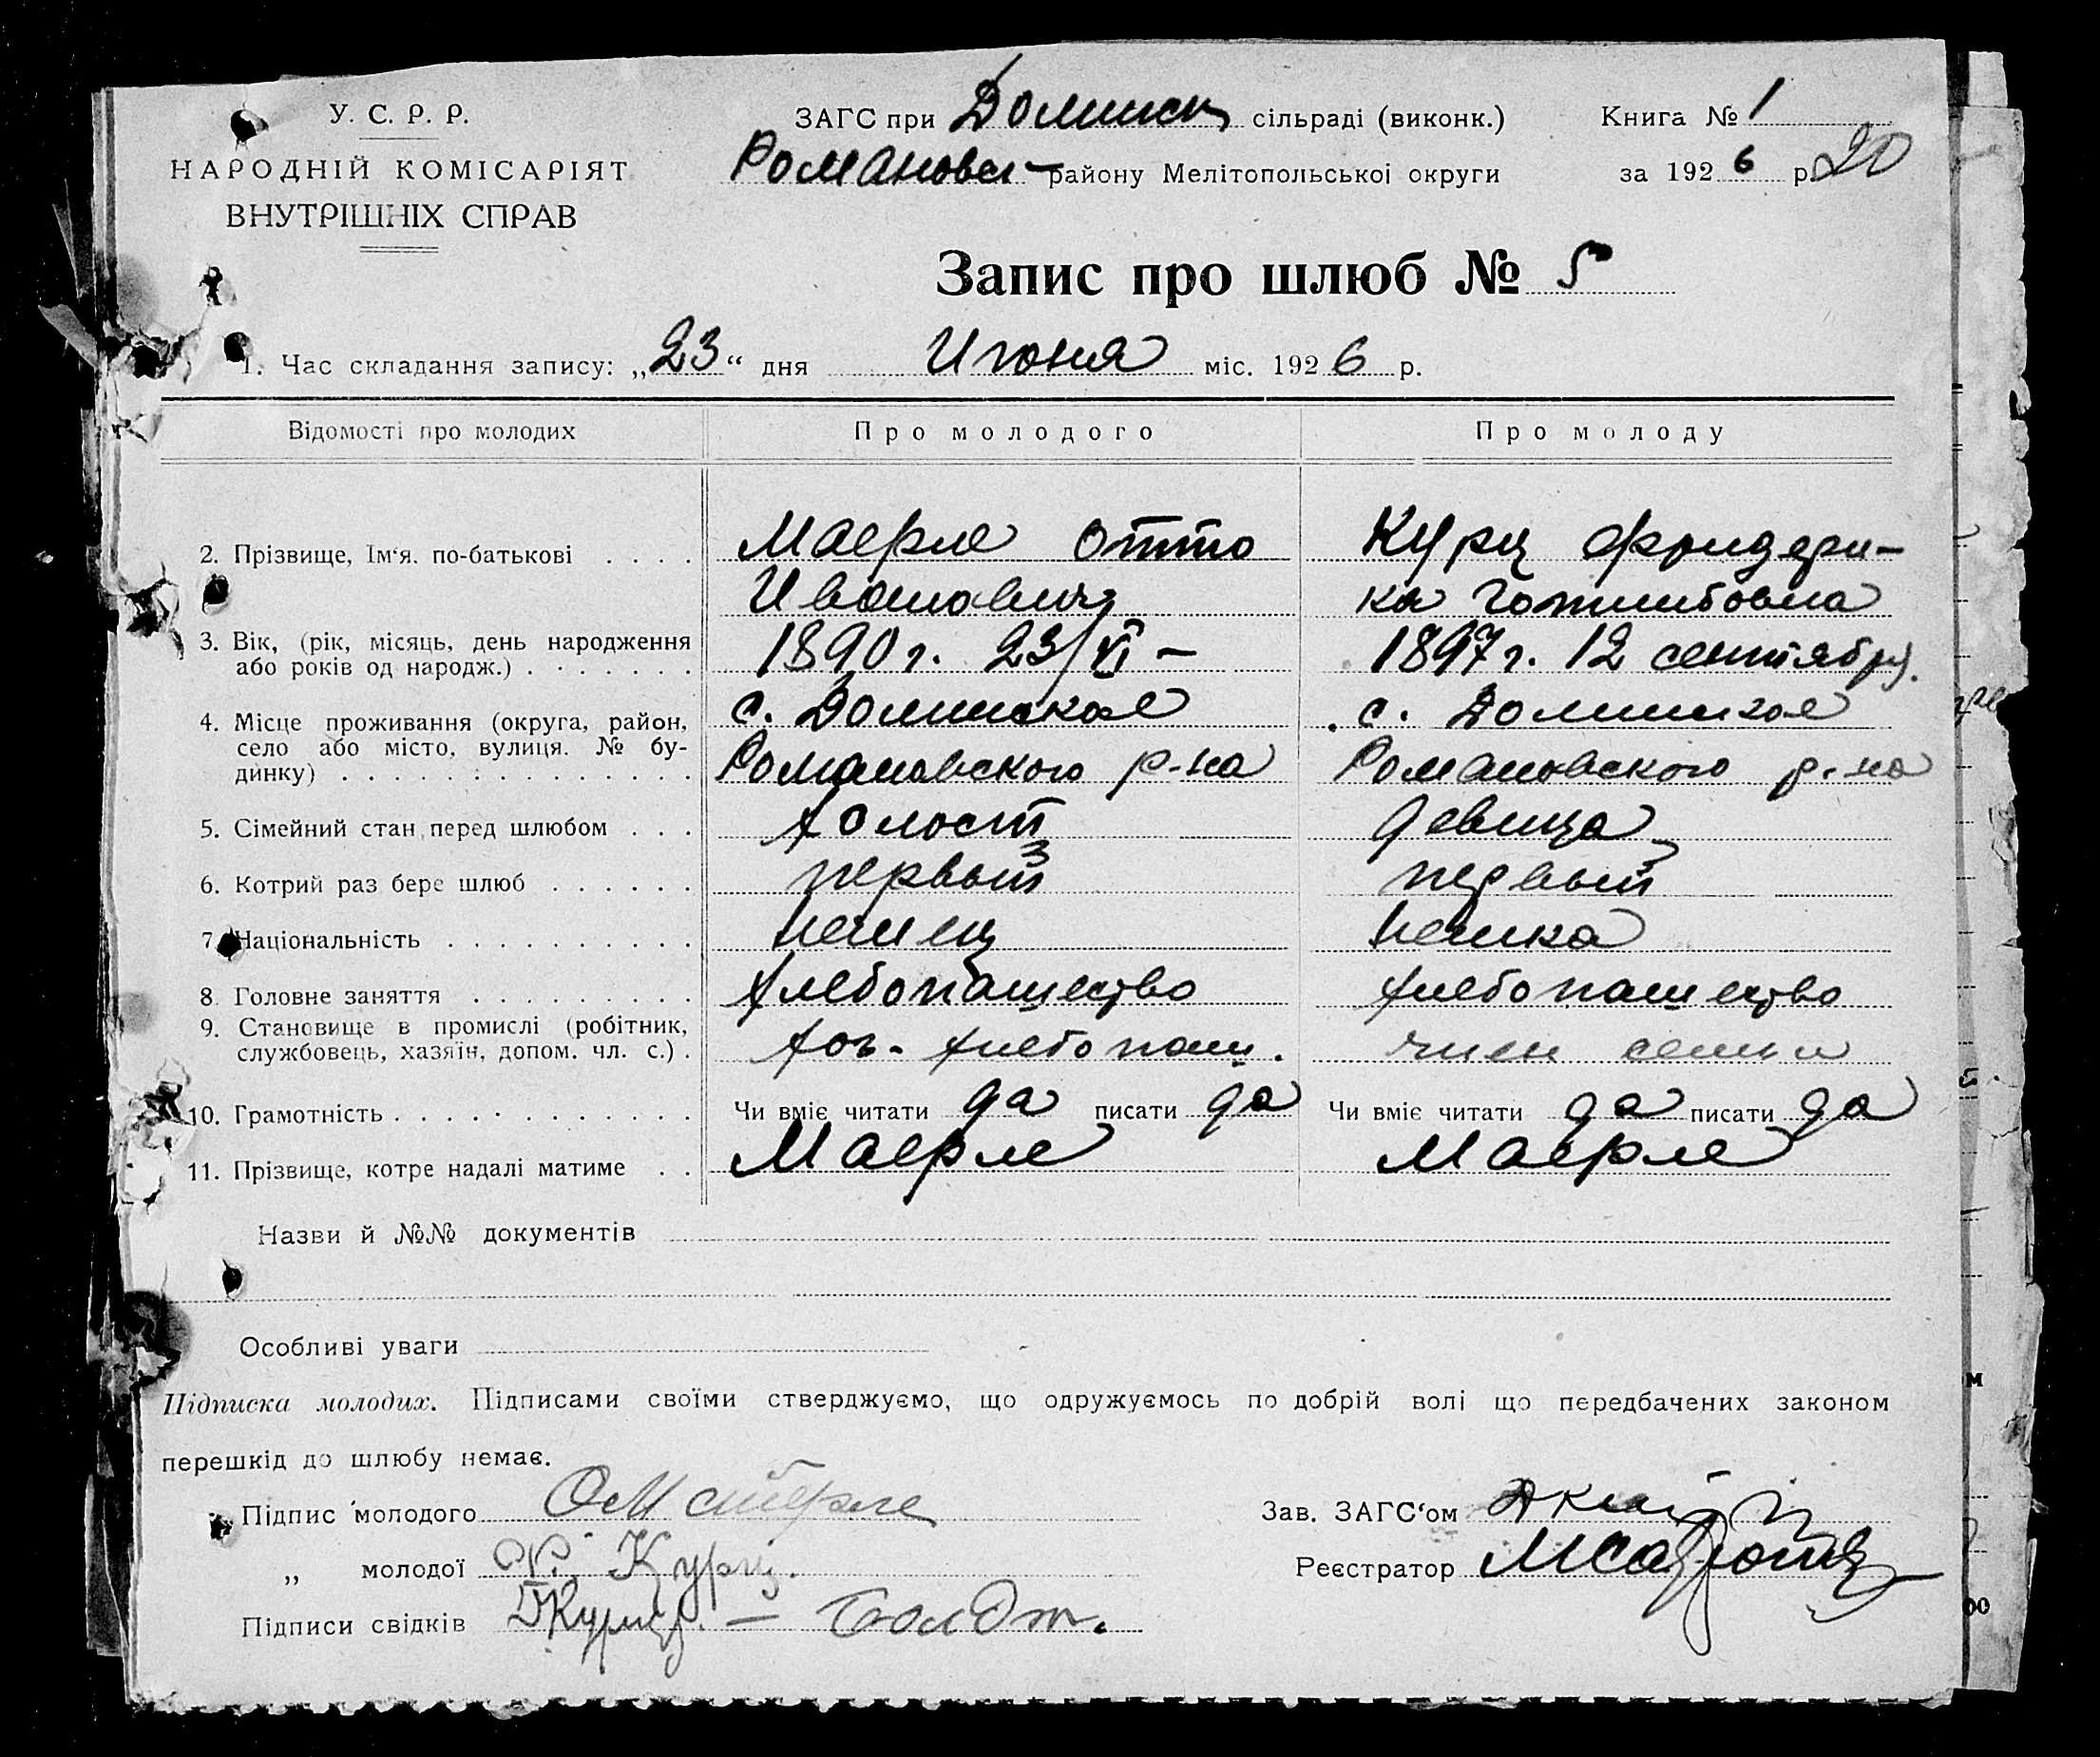 У. С. Р. Р.
НАРОДНІЙ КОМІСАРІЯТ
ВНУТРІШНІХ СПРАВ
ЗАГС при Долинск сільраді (виконк.)
Романовск районy Мелітопольської округи
Книга № 1
за 1926 р. 20
Запис про шлюб № 5
1. Час складання запису: „23“ дня Июня міс. 1926 р.
Відомості про молодих Про молодого Про молоду
2. Прізвище, Ім‘я. по-батькові . . . . Маерле Отто Курц Фридери-
Иванович ка Готлибовна
3. Вік, (рік, місяць, день народження 1890 г. 23/VI – 1897 г. 12 сентября.
або років од народж.) . . . . . . .
4. Місце проживання (округа, район, с. Долинское с. Долинское
село або місто, вулиця. № бу- Романовского р-на Романовского р-на
динку) . . . . . . . . . . . . . .
5. Сімейний стан перед шлюбом . . . холост девица
6. Котрий раз бере шлюб . . . . . . первый первый
7. Національність . . . . . . . . . . немец немка
8. Головне заняття . . . . . . . . . хлебопашество хлебопашество
9. Становище в промислі (робітник,
службовець, хазяїн, допом. чл. с.) . хоз- хлебопаш. член семьи
10. Грамотність . . . . . . . . . . . . Чи вміє читати да писати да Чи вміє читати да писати да
11. Прізвище, котре надалі матиме . . Маерле Маерле
Назви й №№ документів
Особливі уваги
Підписка молодих. Підписами своїми стверджуємо, що одружуємось по добрій волі що передбачених законом
перешкід до шлюбу немає.
Підпис молодого О Майерле Зав. ЗАГС‘ом
„ молодої Ф. Курц. Реєстратор
Підписи свідків Курц. –